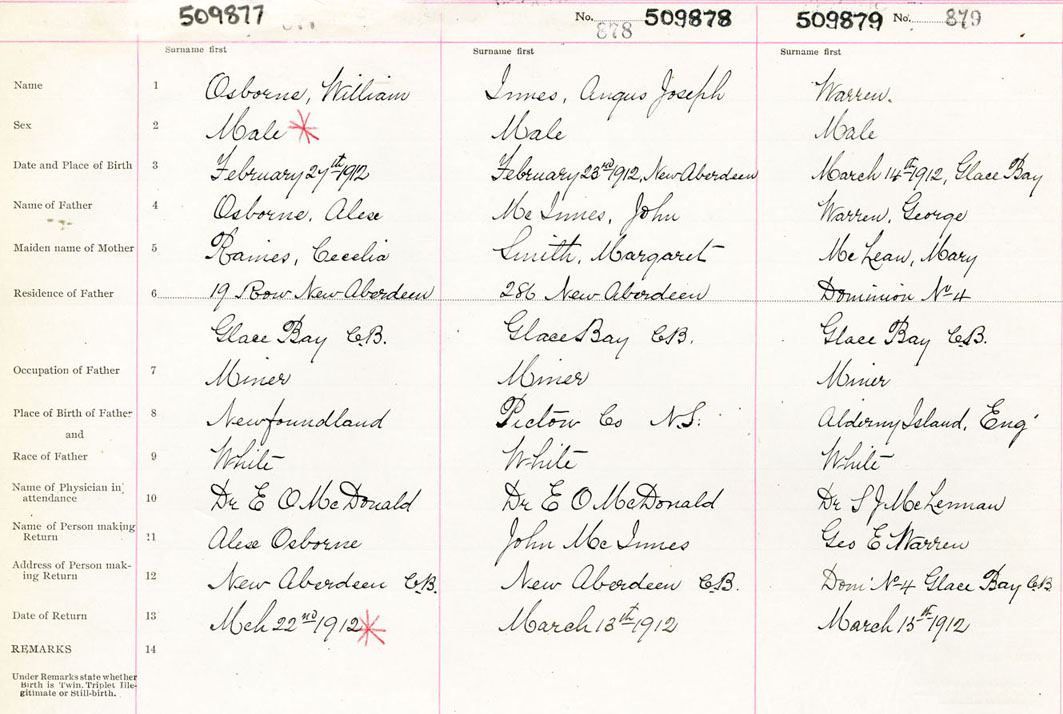 509877 No. 878 509878 509879 No. 879
Surname first Surname first Surname first
Name 1 Osborne, William Innes, Angus Joseph Warren.
Sex 2 Male Male Male
Date and Place of Birth 3 February 27th 1912 February 23rd 1912, New Aberdeen March 14th 1912, Glace Bay
Name of Father 4 Osborne, Alex Mc Innes, John Warren, George
Maiden name of Mother 5 Raines, Cecelia Smith, Margaret Mc Lean, Mary
Residence of Father 6 19 Row New Aberdeen 286 New Aberdeen Dominion No 4
Glace Bay C.B. Glace Bay C.B. Glace Bay C.B.
Occupation of Father 7 Miner Miner Miner
Place of Birth of Father 8 Newfoundland Pictou Co N.S. Alderny Island, Eng'
and
Race of Father 9 White White White
Name of Physician in
attendance 10 Dr E O McDonald Dr E O McDonald Dr S J McLennan
Name of Person making
Return 11 Alex Osborne John Mc Innes Geo E Warren
Address of Person mak-
ing Return 12 New Aberdeen C.B. New Aberdeen C.B. Dom' No 4 Glace Bay C.B.
Date of Return 13 Mch 22nd 1912 March 13th 1912 March 15th 1912
REMARKS 14
Under Remarks state whether
Birth is Twin. Triplet Ille-
gitimate or Still-birth.